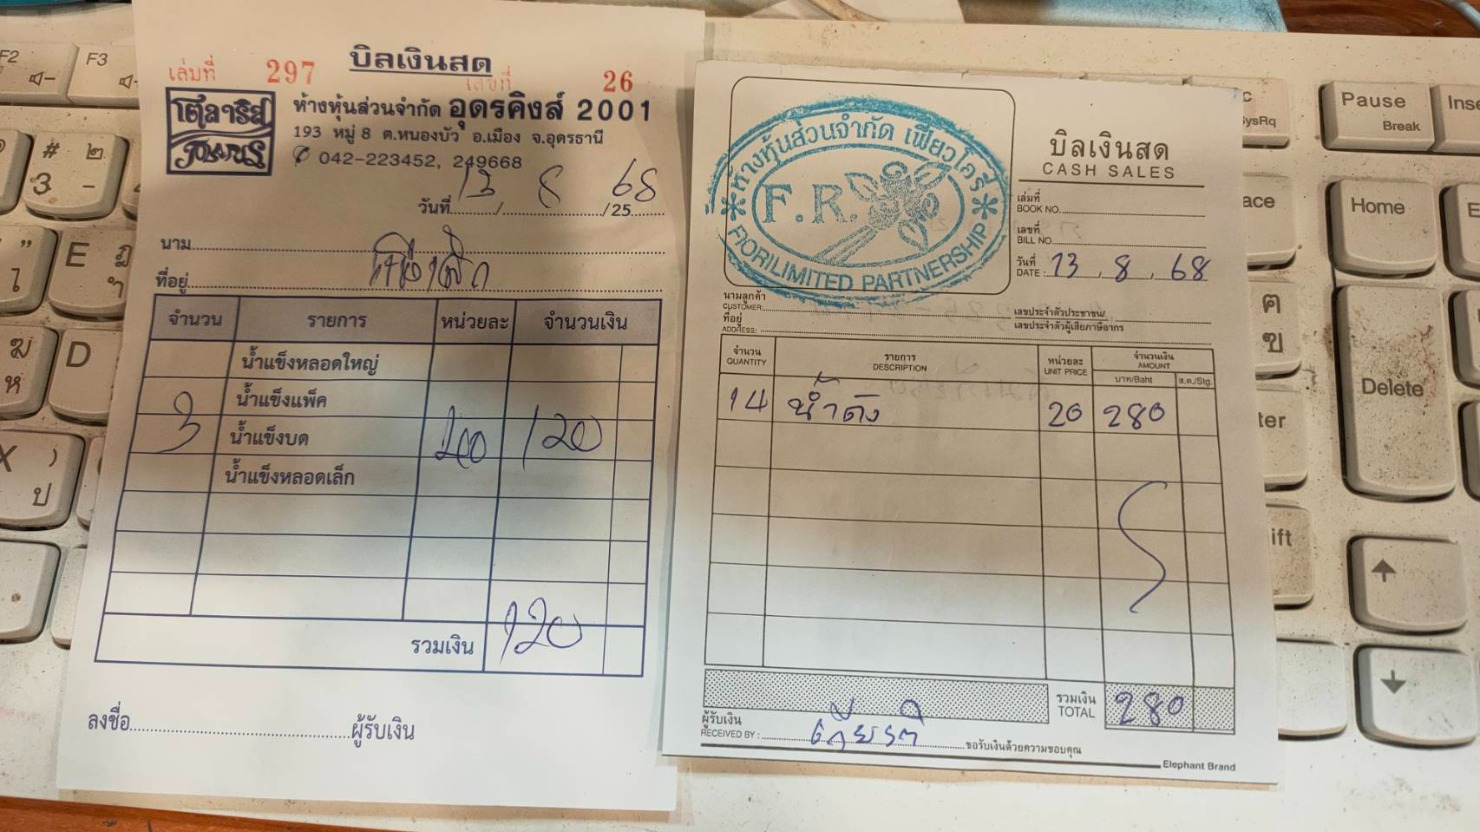 บิลเงินสด
เล่มที่ 297 เลขที่ 26
โพลาริส
POLARIS
ห้างหุ้นส่วนจำกัด อุดรคิงส์ 2001
193 หมู่ 8 ต.หนองบัว อ.เมือง จ.อุดรธานี
042-223452, 249668
วันที่ 13 / 8 /25 68
นาม
ที่อยู่
จำนวน รายการ หน่วยละ จำนวนเงิน
น้ำแข็งหลอดใหญ่
น้ำแข็งแพ็ค
3 น้ำแข็งบด 40 120
น้ำแข็งหลอดเล็ก
รวมเงิน 120
ลงชื่อ ผู้รับเงิน
ห้างหุ้นส่วนจำกัด เฟียวโครี่
F.R.
FIORI LIMITED PARTNERSHIP
บิลเงินสด
CASH SALES
เล่มที่
BOOK NO.
เลขที่
BILL NO.
วันที่
DATE : 13 , 8 , 68
นามลูกค้า
CUSTOMER:
ที่อยู่
ADDRESS:
เลขประจำตัวประชาชน/
เลขประจำตัวผู้เสียภาษีอากร
จำนวน รายการ หน่วยละ จำนวนเงิน
QUANTITY DESCRIPTION UNIT PRICE AMOUNT
บาท/Baht ส.ต./Stg.
14 น้ำถัง 20 280
รวมเงิน
TOTAL 280
ผู้รับเงิน
RECEIVED BY : ขอรับเงินด้วยความขอบคุณ
Elephant Brand
F2
F3
#
3
๒
-
"
ไ
E
ำ
ฆ
ห
D
X
)
ป
SysRq
Pause
Break
Home
ค
ฃ
Delete